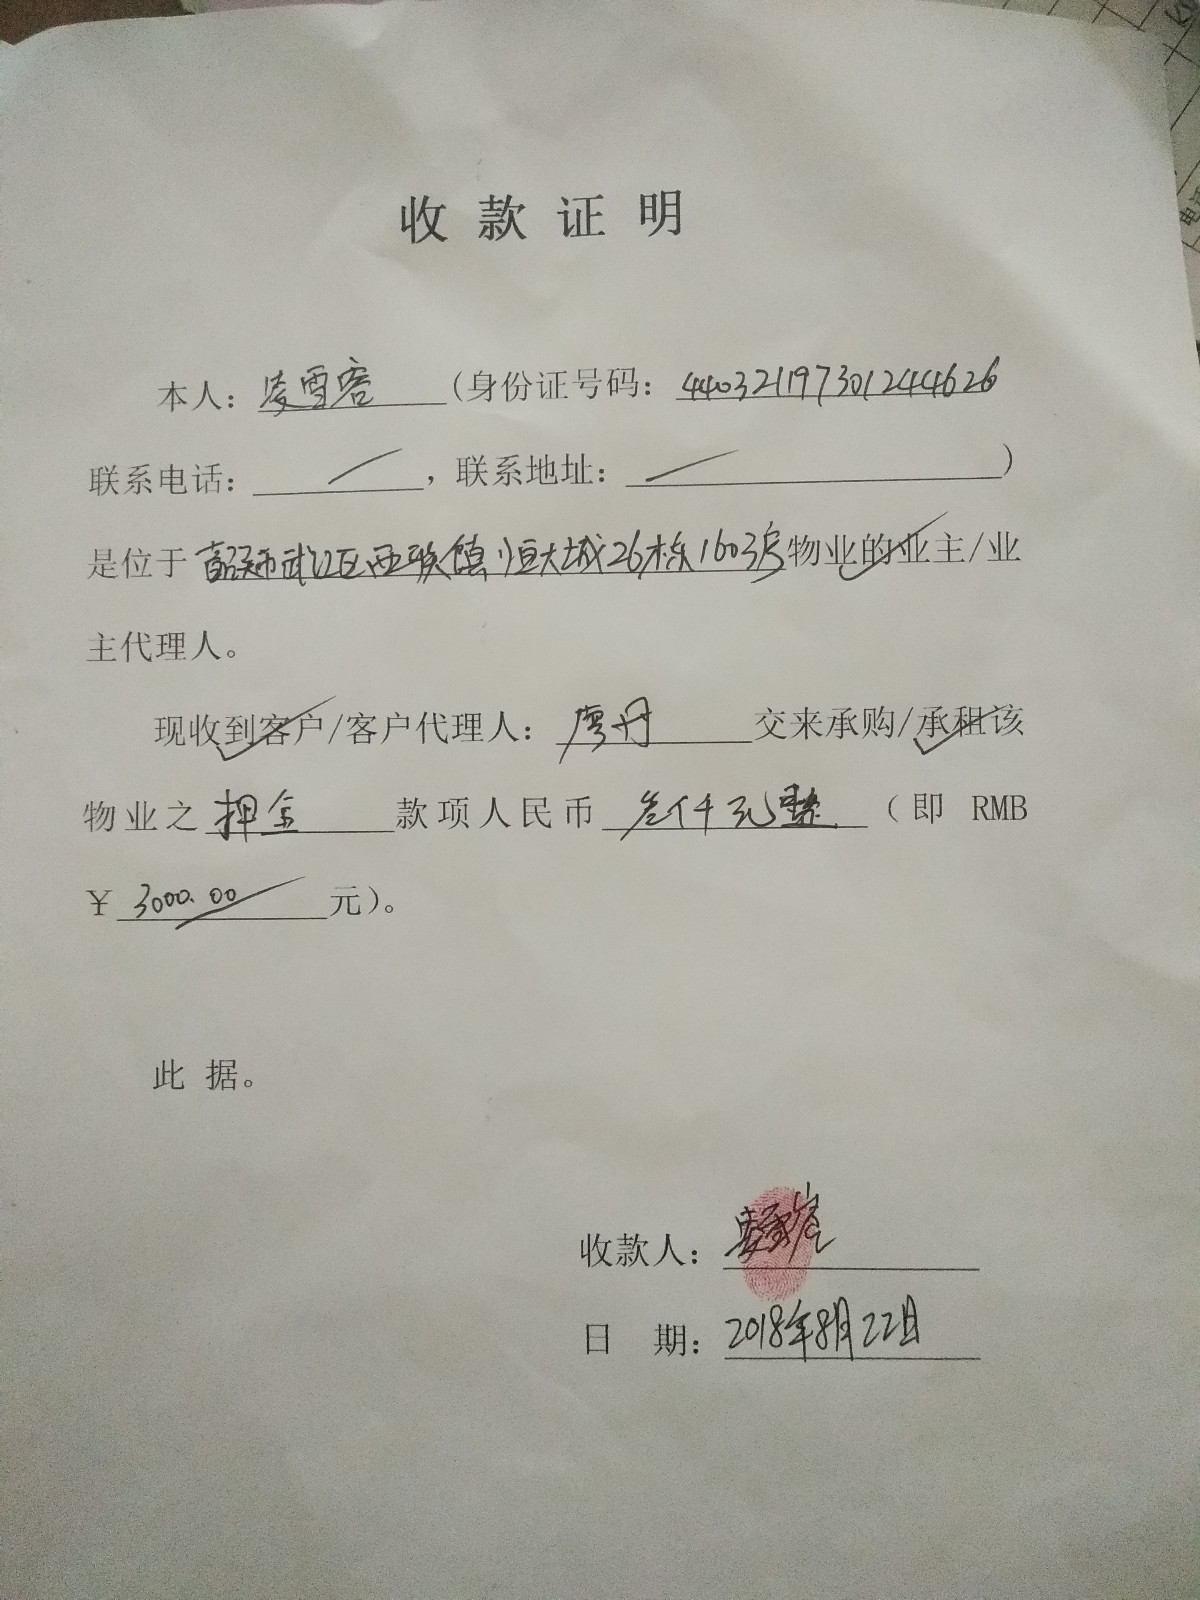 收款证明
本人：凌雪容（身份证号码：440321197301244626
联系电话：／，联系地址：／）
是位于韶关市武江区西联镇恒大城26栋1603房物业的业主/业
主代理人。
现收到客户/客户代理人：廖丹 交来承购/承租该
物业之押金款项人民币叁仟元整（即 RMB
￥3000.00元）。
此 据。
收款人：
日 期：2018年8月22日